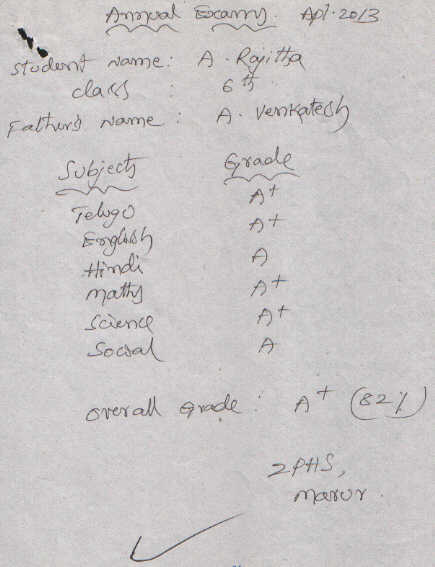 Annual Exams. Apl. 2013
Student Name: A. Rajitha
class : 6th
Father's Name : A. Venkatesh
Subjects Grade
Telugu A+
English A+
Hindi A
Maths A+
Science A+
Social A
overall Grade : A+ (82%)
ZPHS,
Marur.